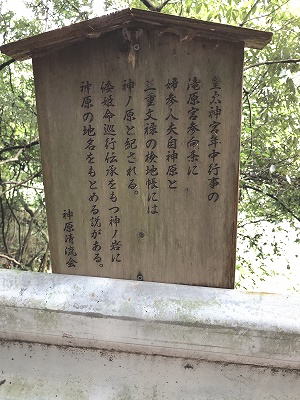 皇太神宮年中行事の
滝原宮参向条に
婦参人夫自神原と
三重文禄の検地帳には
神ノ原と記される。
倭姫命巡行伝承をもつ神ノ岩に
神原の地名をもとめる説がある。
神原清流会